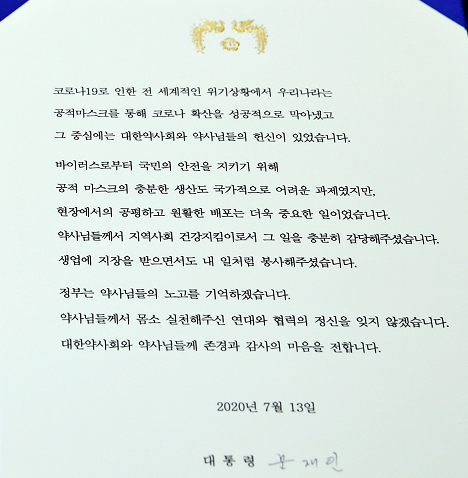 코로나19로 인한 전 세계적인 위기상황에서 우리나라는
공적마스크를 통해 코로나 확산을 성공적으로 막아냈고
그 중심에는 대한약사회와 약사님들의 헌신이 있었습니다.
바이러스로부터 국민의 안전을 지키기 위해
공적 마스크의 충분한 생산도 국가적으로 어려운 과제였지만,
현장에서의 공평하고 원활한 배포는 더욱 중요한 일이었습니다.
약사님들께서 지역사회 건강지킴이로서 그 일을 충분히 감당해주셨습니다.
생업에 지장을 받으면서도 내 일처럼 봉사해주셨습니다.
정부는 약사님들의 노고를 기억하겠습니다.
약사님들께서 몸소 실천해주신 연대와 협력의 정신을 잊지 않겠습니다.
대한약사회와 약사님들께 존경과 감사의 마음을 전합니다.
2020년 7월 13일
대통령 문재인